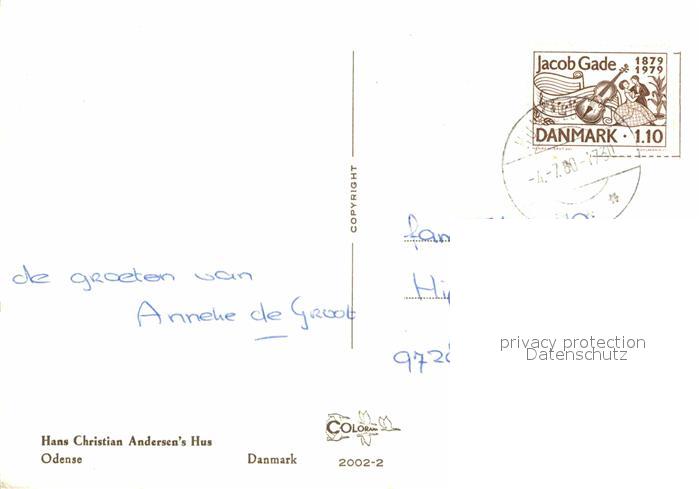 Jacob Gade 1879
1979
DANMARK · 1.10
-4.-7.80-1730
COPYRIGHT
de groeten van
Anneke de Groot
fam
privacy protection
Datenschutz
COLOR
Hans Christian Andersen's Hus
Odense Danmark 2002-2